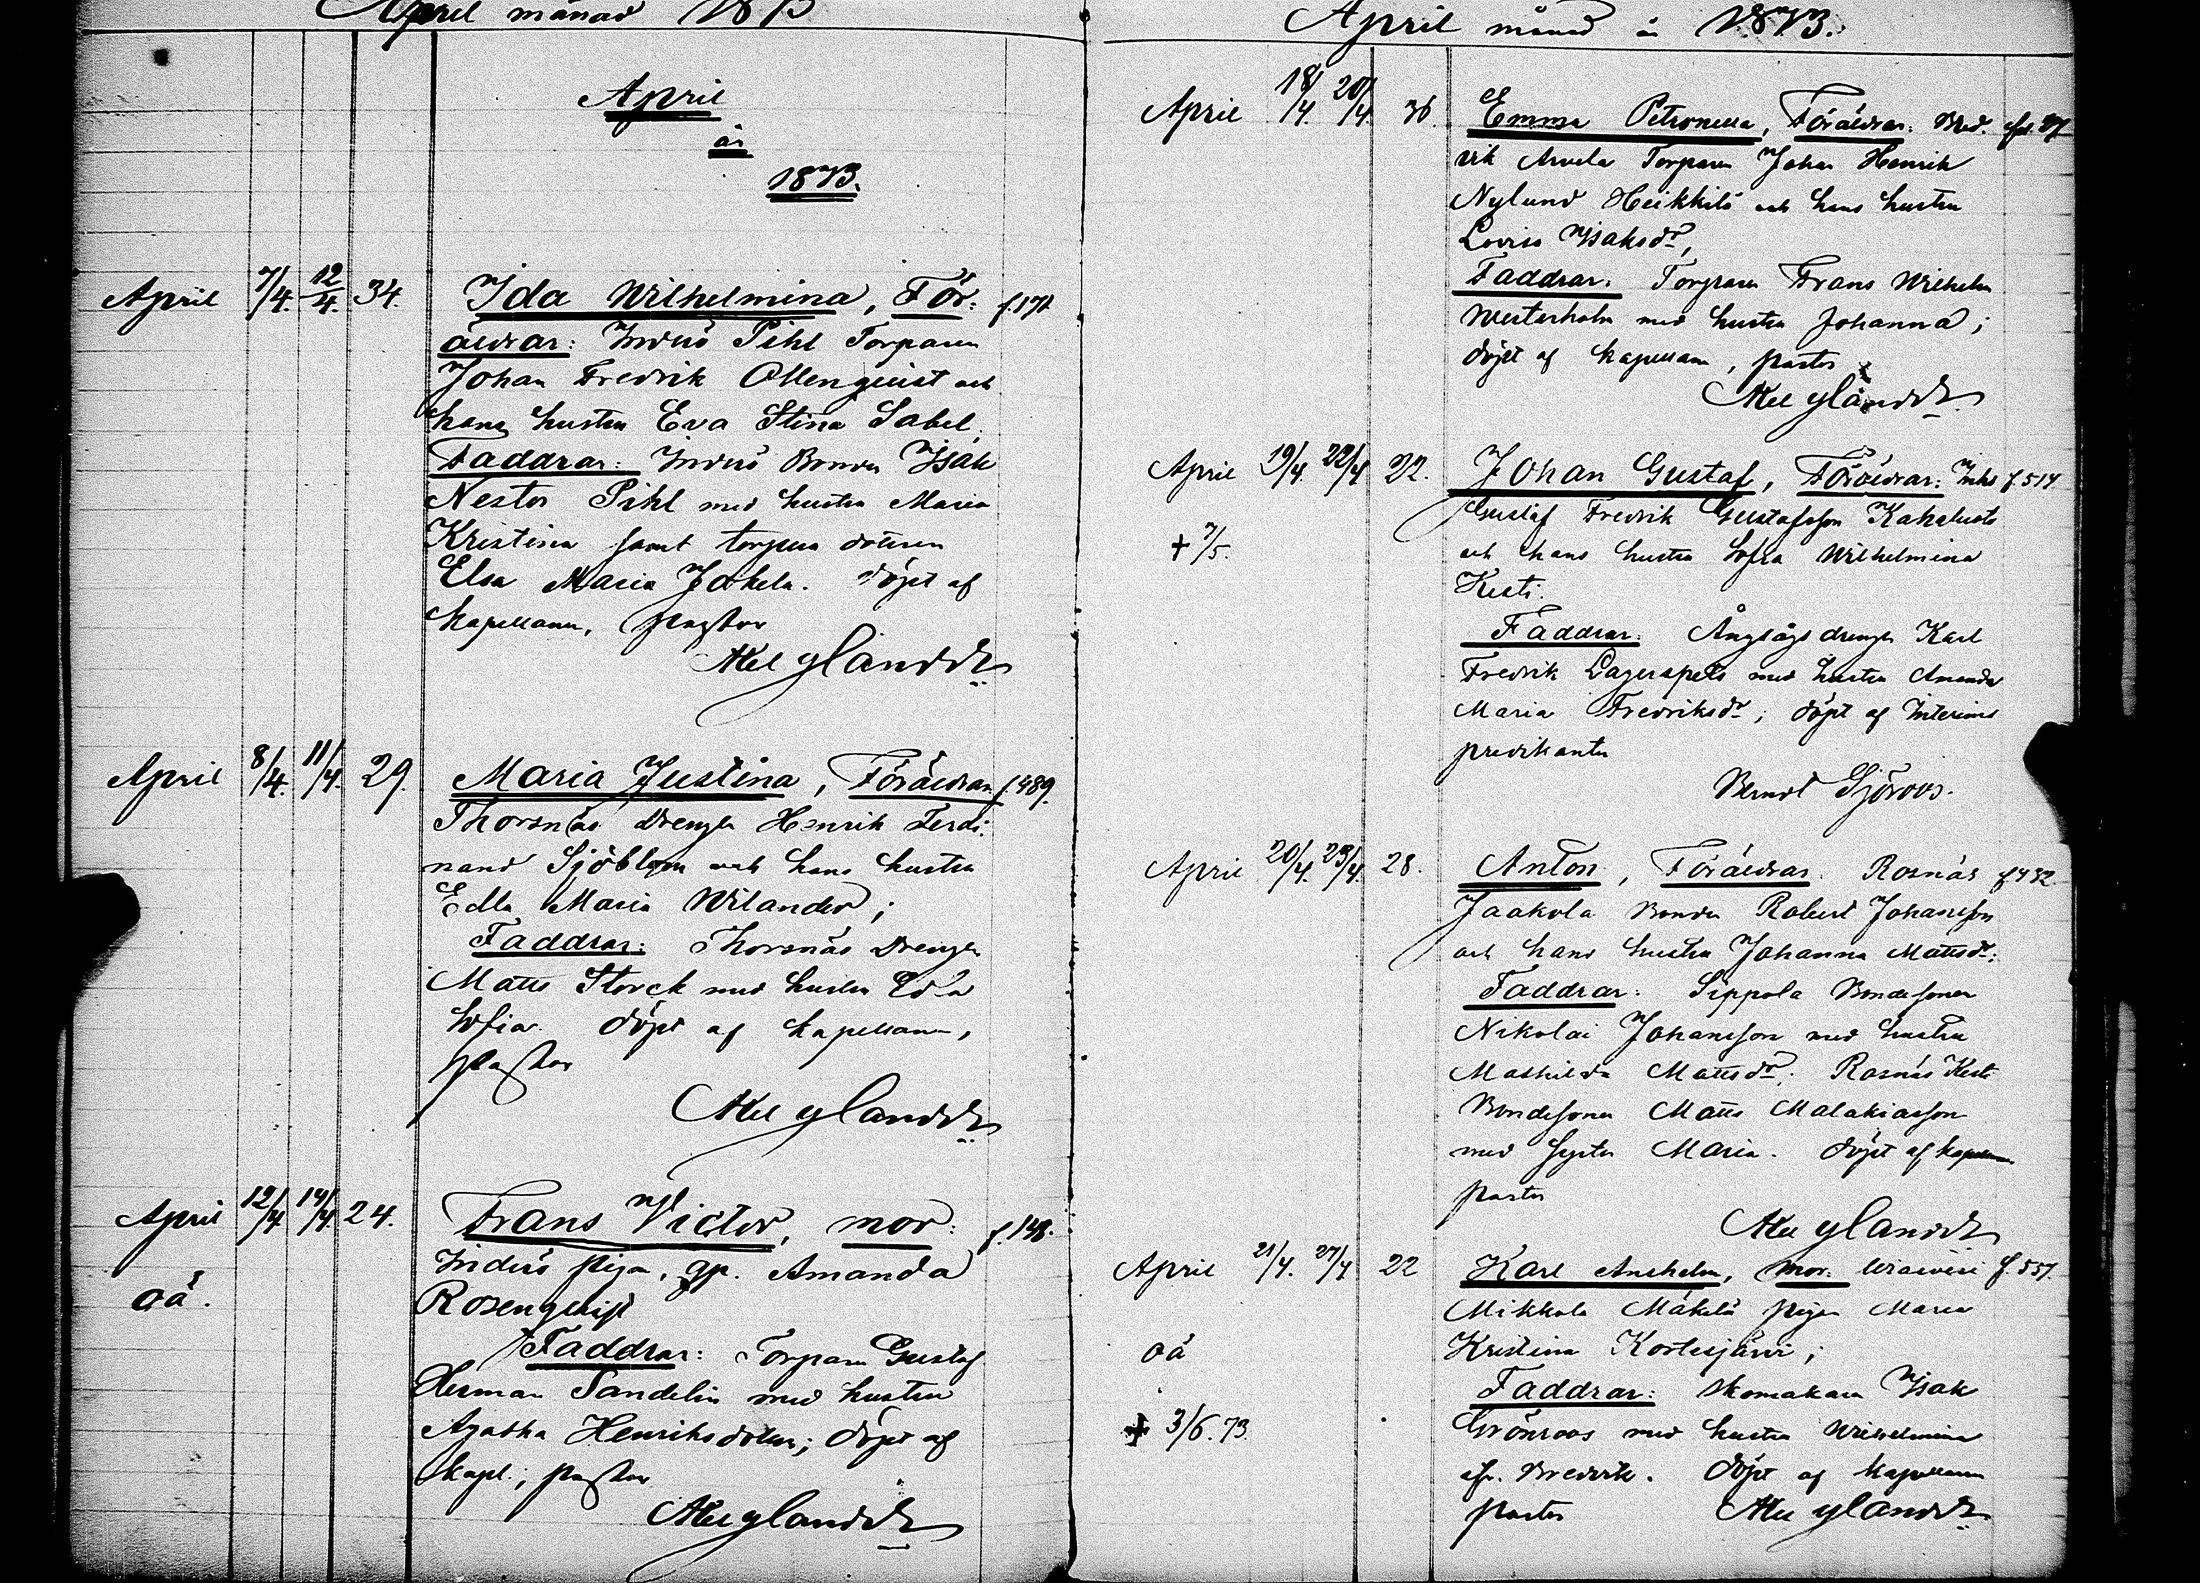 April månad 1873
April
år
1873.
April 7/4. 12/4. 34. Ida Wilhelmina, För- f. 171
äldrar: Inderö Pihl Torparen
Johan Fredrik Ollenqvist och
hans hustru Eva Stina Sabel.
Faddrar: Inderö Bonden Isak
Nestor Pihl med hustru Maria
Kristina samt torpare dottren
Elsa Maria Jakela. döpt af
kapellanen, pastor
Axel Ylander
April 8/4. 11/4. 29. Maria Justina, Föräldrar f. 489.
Thorsnäs Drengen Henrik Ferdi-
nand Sjöblom och hans hustru
Edla Maria Wilander;
Faddrar: Thorsnäs Drengen
Matts Storck med hustru Eva
Sofia. döpt af kapellanen,
pastor
Axel Ylander
April 12/4 14/4 24. Frans Victor, mor: f. 148.
Inderö piga, gp. Amanda
oä. Rosenqvist
Faddrar: Torparen Gustaf
Herman Sandelin med hustru
Agatha Henriksdotter; döpt af
kapl.; pastor
Axel Ylander
April månad år 1873.
April 18/4. 20/4 36. Emma Petronella, Föräldrar: Bred-
vik Torparen Johan Henrik
Nylund Heikkilä och hans hustru
Lovisa Isaksdr,
Faddrar: Torparen Frans Wilhelm
Westerholm med hustru Johanna;
döpt af kapellanen, pastor
Axel Ylander
April 19/4. 22/4 22. Johan Gustaf, Föräldrar: Inhs f. 514
Gustaf Fredrik Gustafsson Kahaluoto
+ 7/5. och hans hustru Sofia Wilhelmina
Kesti.
Faddrar: Ångsågs drengen Karl
Fredrik Lagerspets med hustru Amanda
Maria Fredriksdr; döpt af Interims
predikanten
Berndt Sjöroos.
April 20/4. 23/4. 28. Anton, Föräldrar: Rosnäs f. 432.
Jaakola Bonden Robert Johansson
och hans hustru Johanna Mattsdr;
Faddrar: Sippola Bondesonen
Nikolai Johansson med hustru
Mathilda Mattsdr; Rosnäs Kesti
Bondesonen Matts Malakiasson
med syster Maria. döpt af kapellanen
pastor
Axel Ylander
April 21/4. 27/4 22 Karl Anshelm, mor: f. 557.
Mikkola Mäkelä pigan Maria
oä Kristina Kortesjärvi;
Faddrar: skomakaren Isak
+ 3/6. 73. Grönroos med hustru Wilhelmina
Bredvik. döpt af kapellanen
pastor Axel Ylander